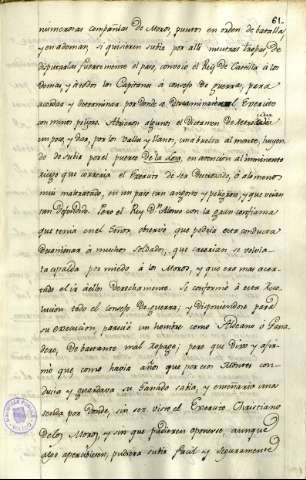 61.
numerosas compañias de Moros, puestos en orden de batalla,
y en ademan, si quisieren subir por alli nuestras tropas, de
disputarles fuertemente el paso, convocó el Rey de Castilla á los
demas, y á todos los Capitanes á consejo de guerra, para
acordar y determinar por donde se encaminaria el Exercito
con menos peligro. Abrieron algunos el Dictamen de
un poco, y dar, por los Valles y llanos, una buelta al monte, huyen
do de subir por el puerto de la Losa, en atencion al inminente
riesgo que correria el Exercito de ser derrotado, ó á lo menos
mui maltratado, en un paso tan angosto y peligroso, y que veian
tan defendido. Pero el Rey Dn. Alonso con la gran confianza
que tenia en el Señor, observó que podria esta conducta
desanimar á muchos soldados, que creerian se volvia
la espalda por miedo á los Moros, y que era mas acer
tado el ir á ellos derechamente. Se conformó á esta Reso
lucion todo el consejo de guerra; y disponiendose para
su execucion, pareció un hombre como Aldeano ó Gana
dero, de bastante mal ropage; pero que dixo y afir
mó que como havia años que por esos Montes con
ducia y guardava su ganado sabia, y enseñaria una
senda por donde, sin ser visto el Exercito Christiano
de los Moros, y sin que pudiesen oponerse, aunque
apercibiesen, pudiera subir facil y seguramente